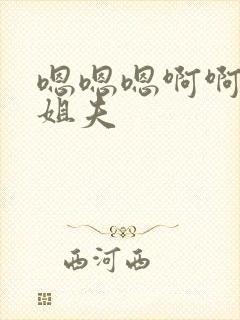 嗯嗯嗯啊啊
姐夫
西河西